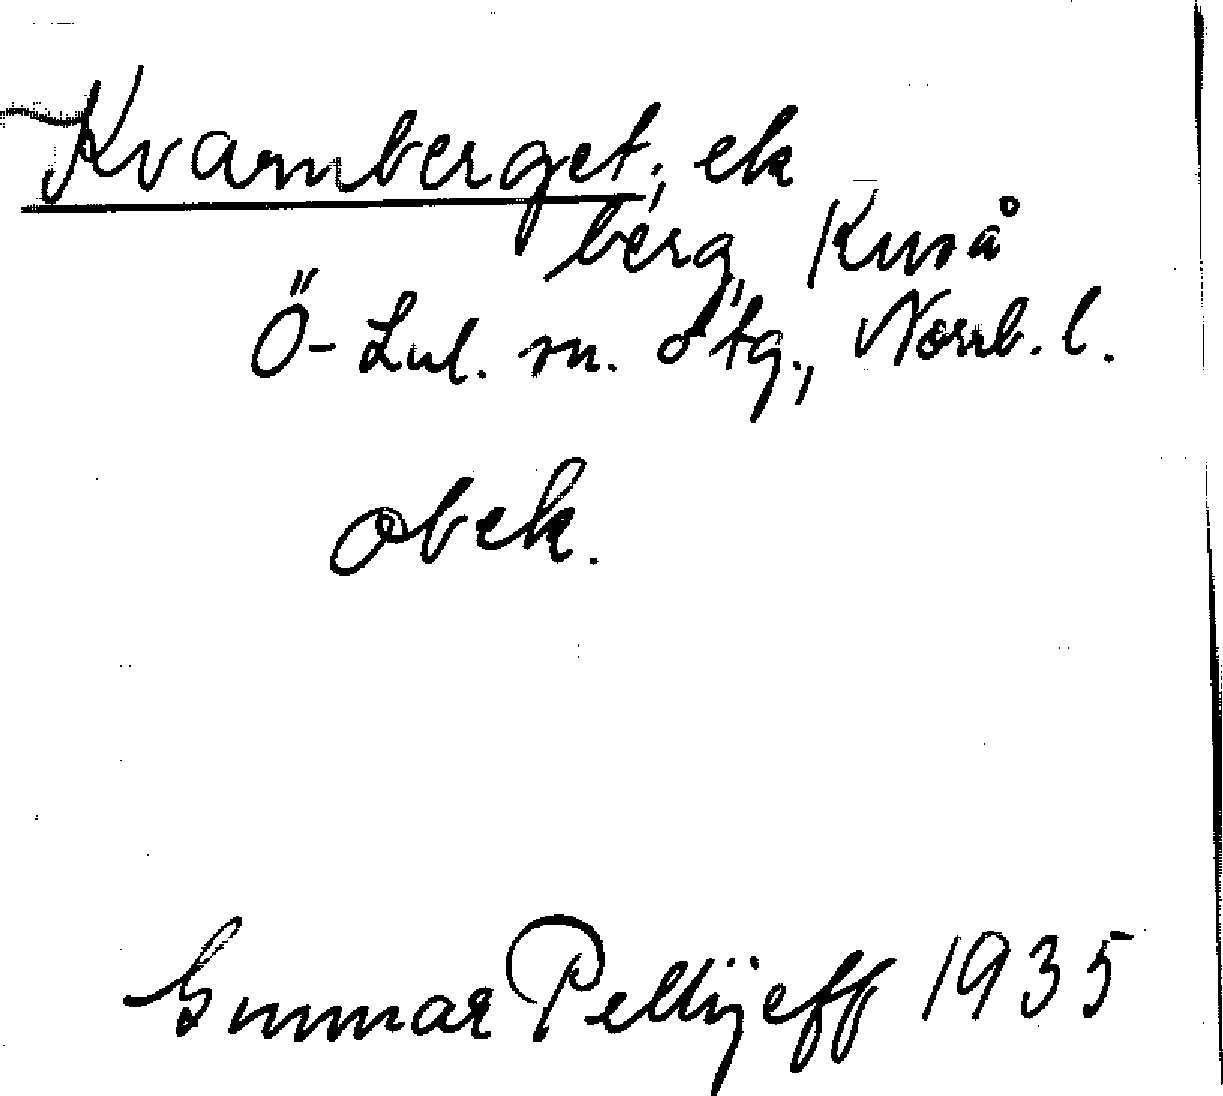 Kvarnberget; ek
berg, Kuså
Ö-Lul. sn. o tg., Norrb. l.
obek.
Gunnar Pellijeff 1935